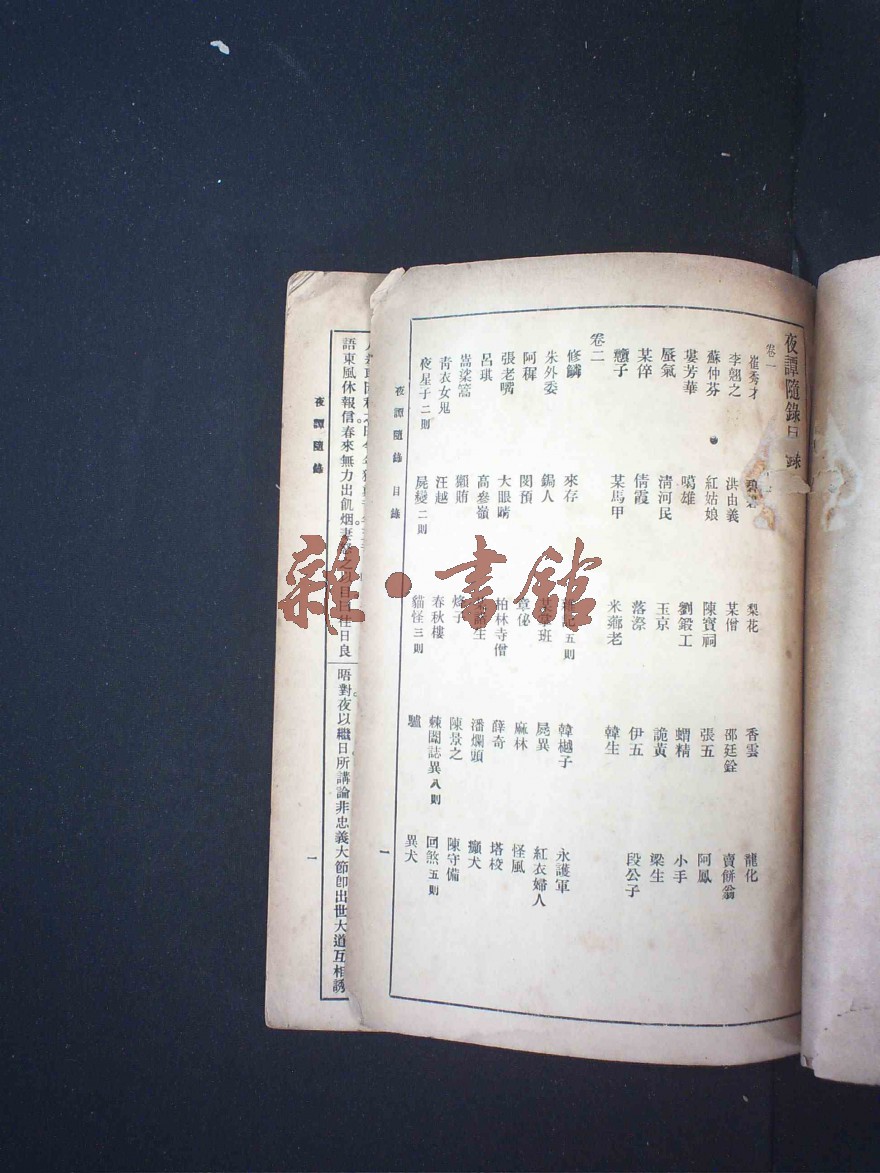 夜譚隨錄目錄
卷一
崔秀才 碧碧 梨花 香雲 龍化
李翹之 洪由義 某僧 邵廷銓 賣餅翁
蘇仲芬 紅姑娘 陳寶祠 張五 阿鳳
堪芳華 噶雄 劉鍛工 蝟精 小手
蜃氣 清河民 玉京 詭黃 梁生
某倅 倩霞 落漈 伊五 段公子
戇子 某馬甲 米薌老 韓生
卷二
修鱗 來存 五則 韓樾子 永護軍
朱外委 鍚人 某 班 屍異 紅衣婦人
阿穉 閔預 章佖 麻林 怪風
張老嘴 大眼睛 柏林寺僧 薛奇 塔校
呂琪 高參領 生 潘爛頭 癩犬
嵩梁篙 獺賄 烽子 陳景之 陳守備
青衣女鬼 汪越 春秋樓 棘闈誌異八則 回煞五則
夜星子二則 屍變二則 貓怪三則 驢 異犬
夜譚隨錄 目錄 一
語東風休報信春來無力出飢烟妻 日 往日良 晤對夜以繼日所講論非忠義大節卽出世大道互相誘
夜譚隨錄 一
雜·書館